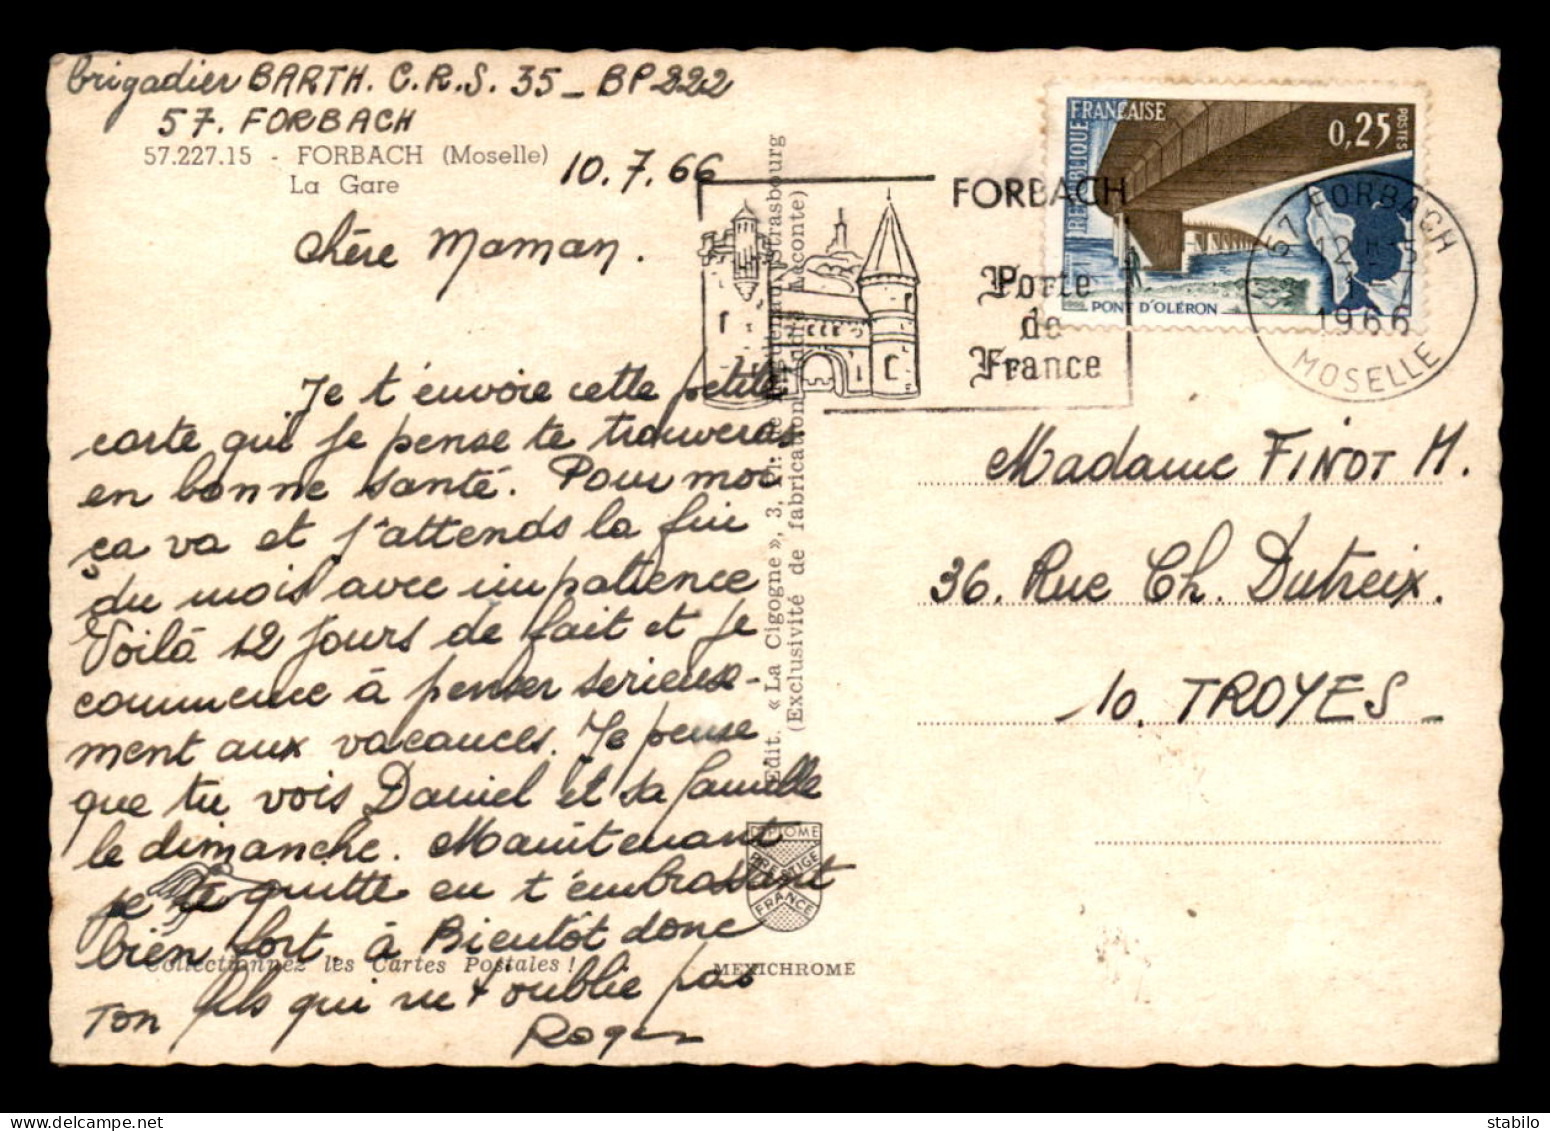 brigadier BARTH. C.R.S. 35 _ BP 222
57. FORBACH
57.227.15 - FORBACH (Moselle)
La Gare
10.7.66
chère Maman.
Je t'envoie cette petite
carte qui je pense te trouveras
en bonne santé. Pour moi
ça va et j'attends la fin
du mois avec impatience
Voilà 12 jours de fait et je
commence à penser serieuse-
ment aux vacances. Je pense
que tu vois Daniel et sa famille
le dimanche. Maintenant
je te quitte en t'embrassant
bien fort. à Bientôt donc
Ton fils qui ne t'oublie pas
Roger
Collectionnez les Cartes Postales !
Edit. « La Cigogne », 3, Pl. de Strasbourg
(Exclusivité de fabrication Leconte)
DIPLOME
PRESTIGE
FRANCE
MEXICHROME
FORBACH
Porte
de
France
REPUBLIQUE FRANÇAISE
0,25
POSTES
PONT D'OLÉRON
57 FORBACH
12 H
1966
MOSELLE
Madame FINOT M.
36. Rue Ch. Dutreix.
10. TROYES _
delcampe.net